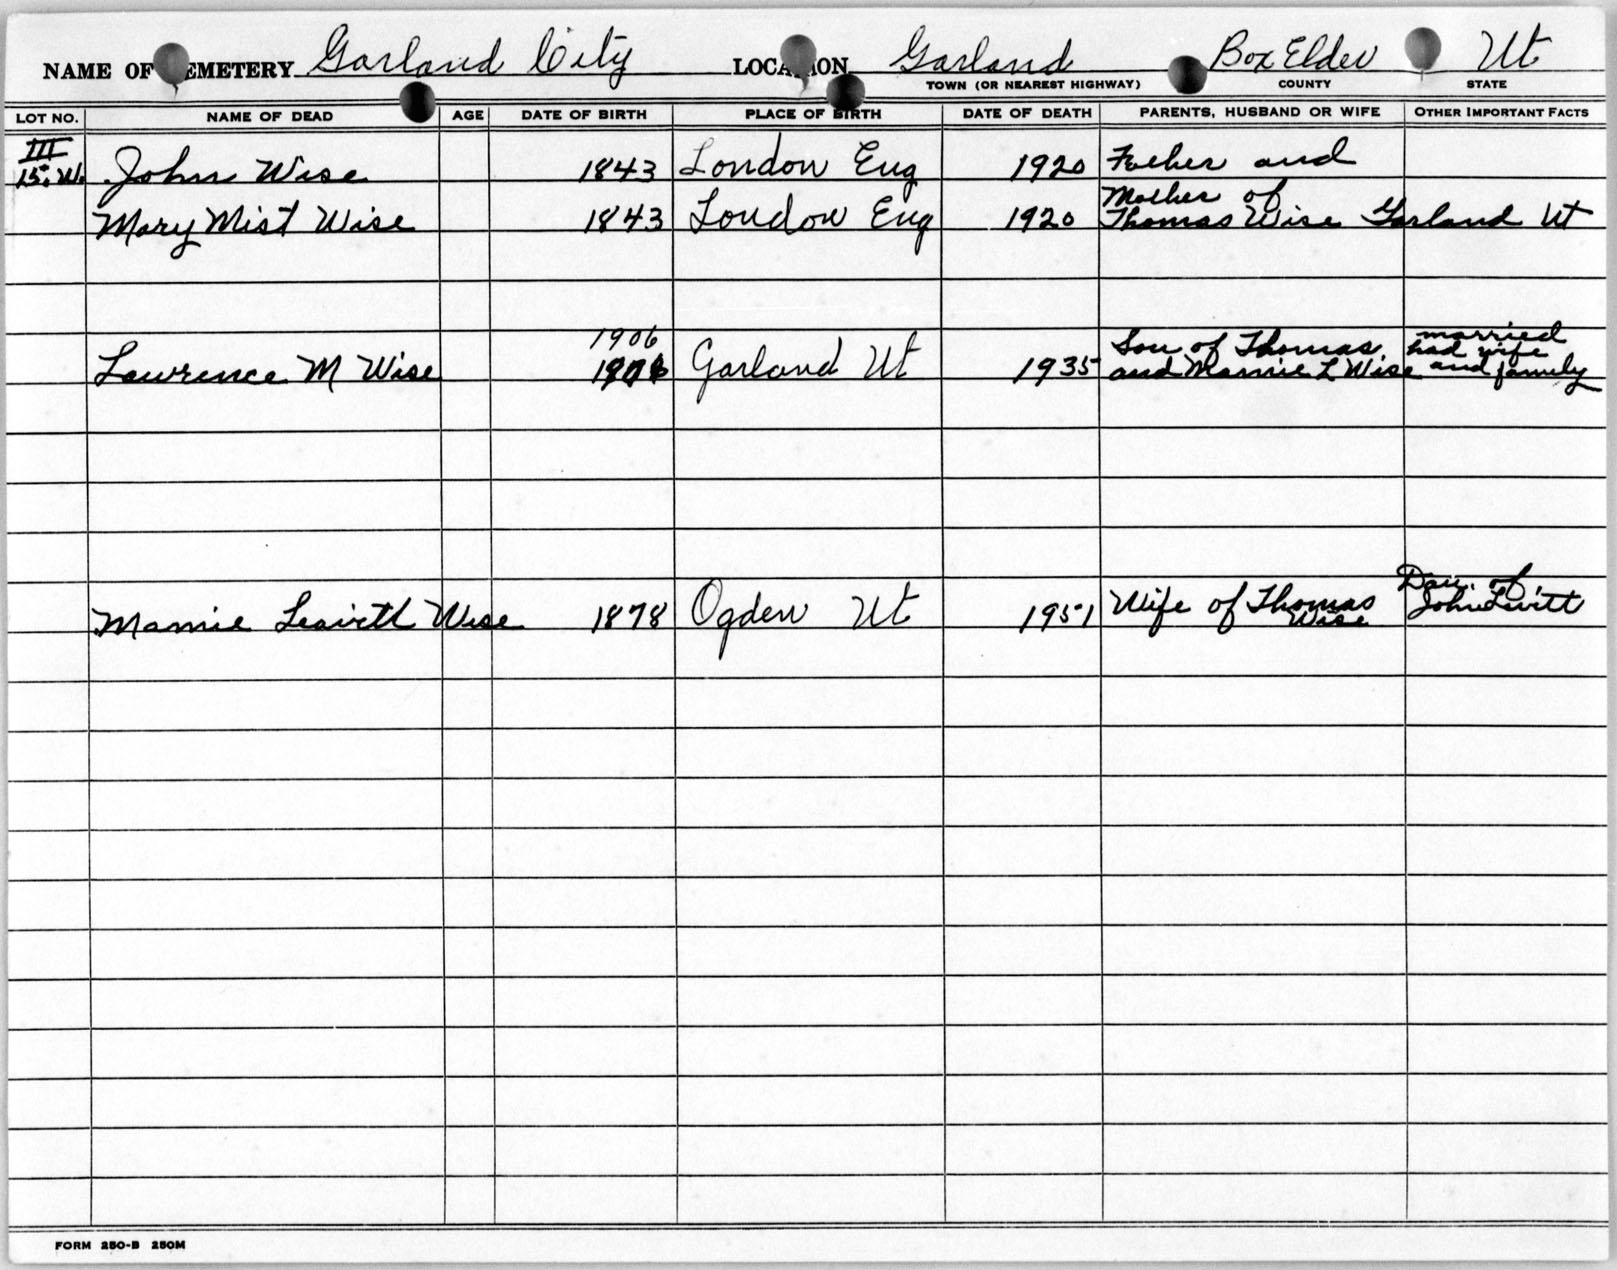 NAME OF CEMETERY Garland City LOCATION Garland Box Elder Ut
TOWN (OR NEAREST HIGHWAY) COUNTY STATE
LOT NO. NAME OF DEAD AGE DATE OF BIRTH PLACE OF BIRTH DATE OF DEATH PARENTS, HUSBAND OR WIFE OTHER IMPORTANT FACTS
III
15. W. John Wise 1843 London Eng 1920 Father and
Mother of
Mary Mist Wise 1843 London Eng 1920 Thomas Wise Garland Ut
1906 Son of Thomas married
had wife
Lawrence M Wise Garland Ut 1935 and Mamie L Wise and family
Dau. of
Mamie Leavitt Wise 1878 Ogden Ut 1951 Wife of Thomas John Levitt
Wise
FORM 250-B 250M